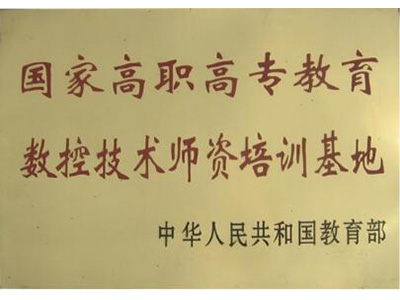 国家高职高专教育
数控技术师资培训基地
中华人民共和国教育部